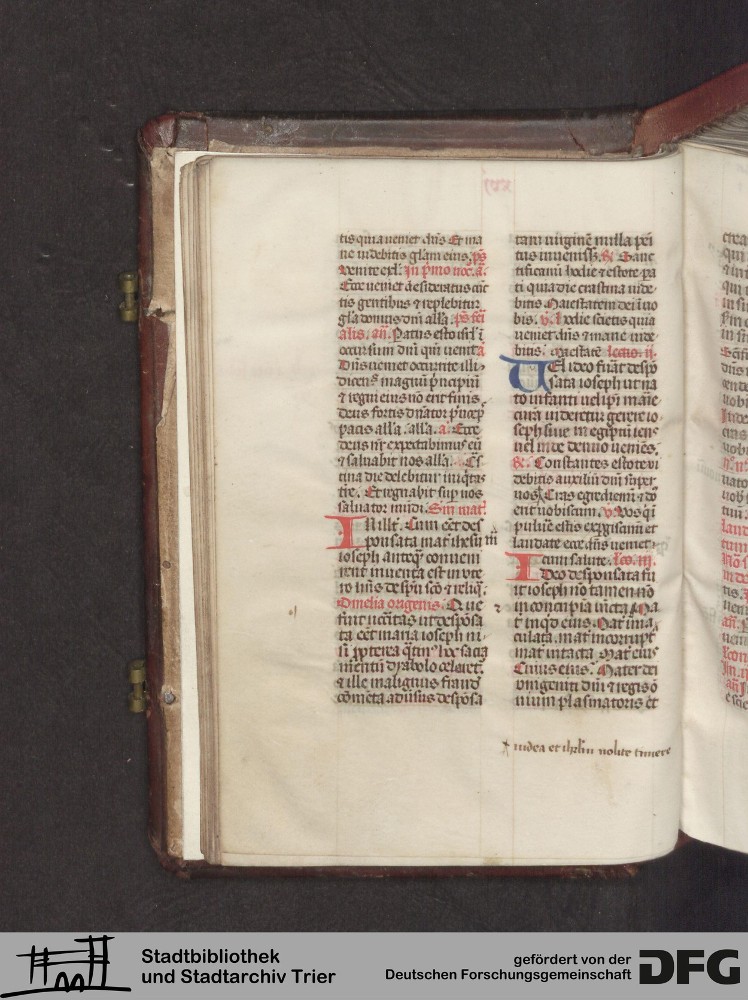 tis quia ueniet dns Et ma
ne uidebitis gliam eius. ps
Venite exl. In pmo noc. a.
Ecce ueniet desideratus cūc
tis gentibus & replebitur
gla domus dni alla. ps feri
alis. añ. Patus esto isrl' i
occursum dni qm uenit a
Dns ueniet occurrite illi
dicentes magnū pncipiū
& regni eius nō erit finis
deus fortis dnator pncep
pacis alla. alla. a. Ecce
deus nr expectabimus eū
& saluabit nos alla. Cs
tina die delebitur iniqtas
tre. Et regnabit sup nos
saluator mūdi. Sm mat.
IN illt. Cum eēt des
ponsata mat ihesu m
ioseph anteq conueni
rent inuenta est in ute
ro hns de spu scō & reliq.
Omelia origenis. Que
fuit necitas ut despōsa
ta eēt maria ioseph ni
si ppterea qtin hoc sacra
mentū dyabolo celaret.
& ille malignus fraud
cōmēta aduisus despōsa
tam uirginē nulla pei
tus inuenisset. R. Sanc
tificamī hodie & estote pa
ti quia die crastina uide
bitis Maiestatem dei i uo
bis. v. Hodie scietis quia
ueniet dns & mane uide
bitis. maiestatē lectio. ii.
Vel ideo fuit despō
sata ioseph ut na
to infanti uel ipi marie
cura uideretur gerere io
seph siue in egiptū iens
uel inde denuo ueniēs.
R. Constantes estote vi
debitis auxiliū dni super
uos Cras egrediemī & dō
erit uobiscum. v. Vos qi
puluere estis expgiscimī et
laudate ecce dns ueniet
cum salute. lco. iii.
IDeo desponsata fu
it ioseph nō tamen nō
in concupia iūcta Ma
t inqd eius. Mat ima
culata. mat incorrupt
mat intacta Mat eius
Cuius eius. Mater dei
vnigeniti dni & regis ō
nium plasmatoris et
iudea et ihrlm nolite timere
Stadtbibliothek
und Stadtarchiv Trier
gefördert von der
Deutschen Forschungsgemeinschaft
DFG